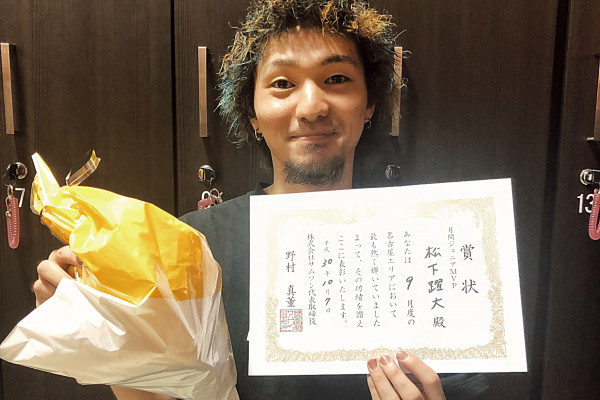 賞状
月間ジュニアMVP
松下躍大殿
あなたは9月度の
名古屋エリアにおいて
最も熱く輝いていました
よって、その功績を讃え
ここに表彰いたします。
平成30年10月7日
株式会社サムソン代表取締役
野村真菫
7
13